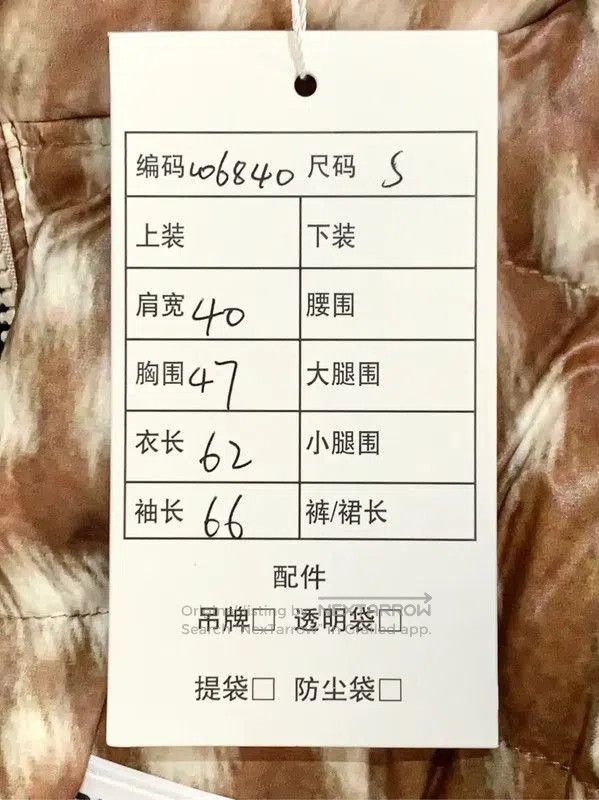 编码 106840 尺码 S
上装 下装
肩宽 40 腰围
胸围 47 大腿围
衣长 62 小腿围
袖长 66 裤/裙长
配件
Original listing by NEXTARROW
吊牌□ 透明袋□
Search "NexTarrow" in Grailed app.
提袋□ 防尘袋□